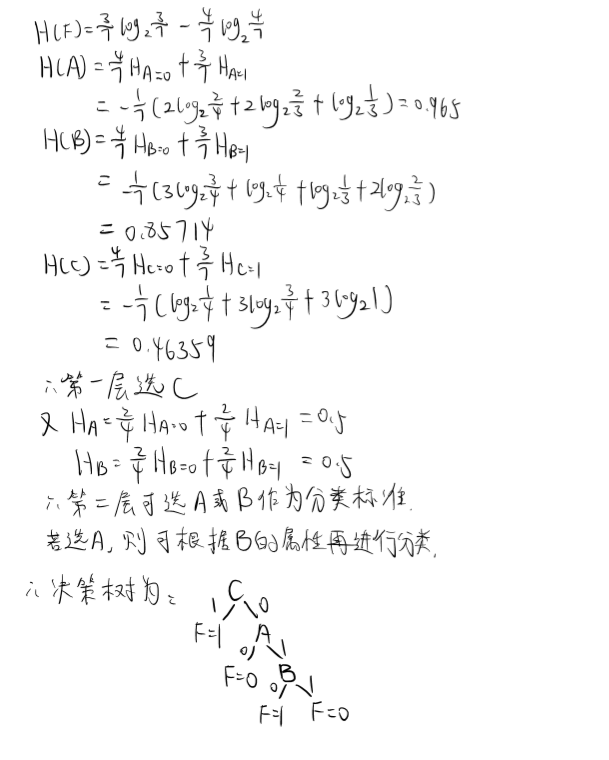 H(F)=3/7 log₂3/7 - 4/7 log₂4/7
H(A)=4/7 H_{A=0} + 3/7 H_{A=1}
= -1/7 (2log₂2/4 + 2log₂2/3 + log₂1/3) = 0.965
H(B)=4/7 H_{B=0} + 3/7 H_{B=1}
= -1/7 (3log₂3/4 + log₂1/4 + log₂1/3 + 2log₂2/3)
= 0.85714
H(C)=4/7 H_{C=0} + 3/7 H_{C=1}
= -1/7 (log₂1/4 + 3log₂3/4 + 3log₂1)
= 0.46359
∴第一层选C
又 H_A = 2/4 H_{A=0} + 2/4 H_{A=1} = 0.5
H_B = 2/4 H_{B=0} + 2/4 H_{B=1} = 0.5
∴第二层可选A或B作为分类标准.
若选A,则可根据B的属性再进行分类.
∴决策树为:
C
1 0
F=1 A
0 1
F=0 B
0 1
F=1 F=0